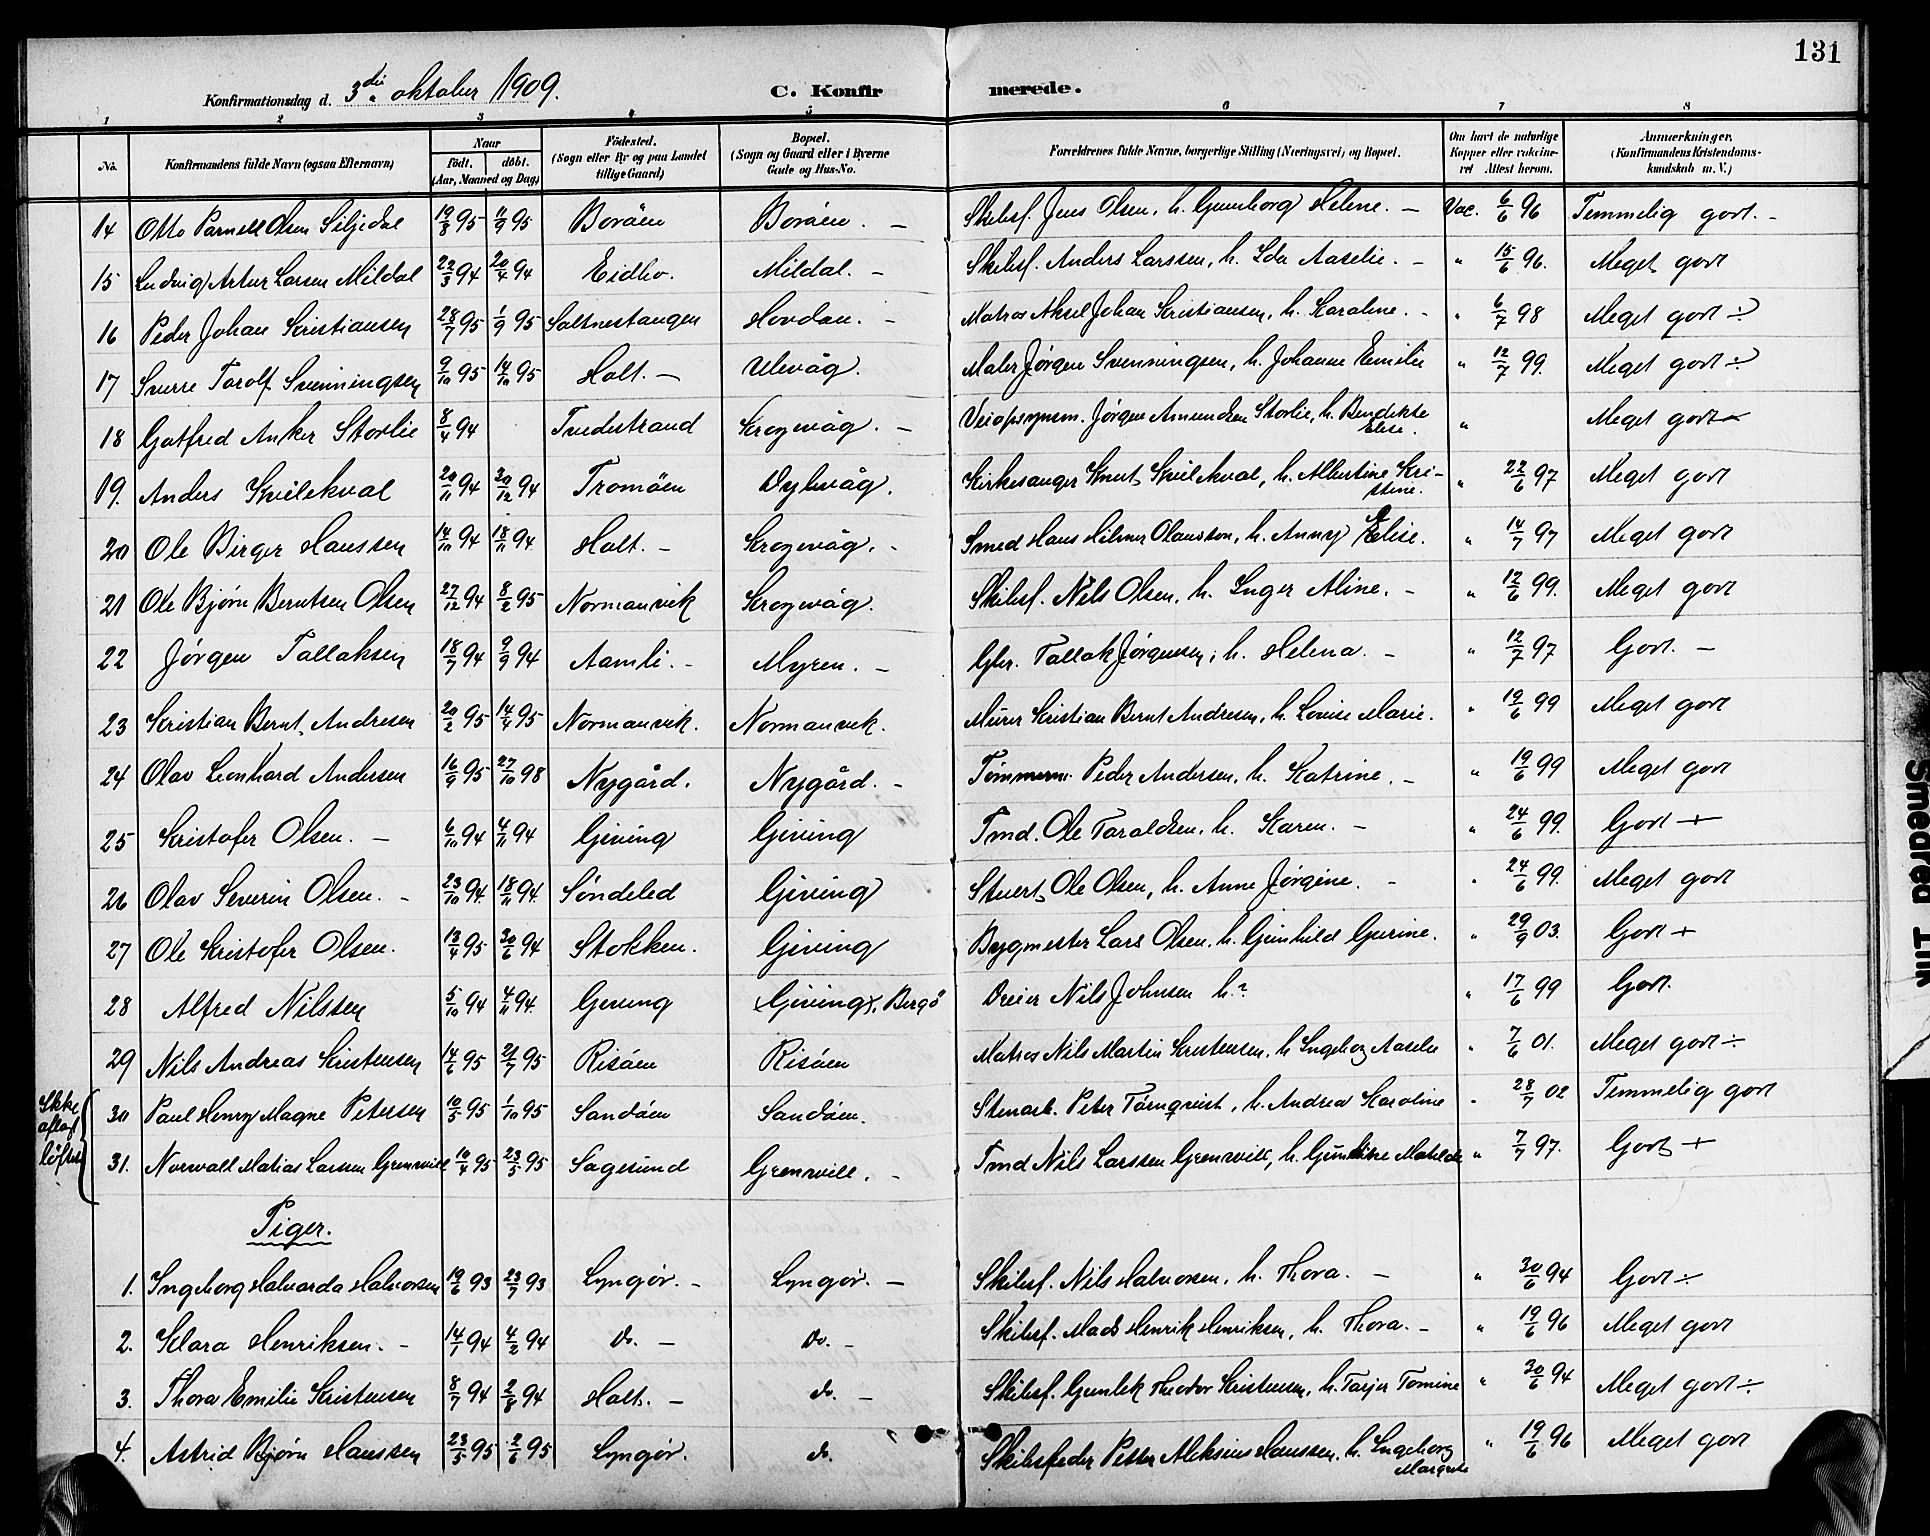 131
Konfirmationsdag d. 3die oktober 1909. C. Konfirmerede.
1 2 3 4 5 6 7 8
No. Konfirmandens fulde Navn (ogsaa Efternavn) Naar født. døbt. (Aar, Maaned og Dag) Fødested. (Sogn eller By og paa Landet tillige Gaard) Bopæl. (Sogn og Gaard eller i Byerne Gade og Hus-No. Forældrenes fulde Navne, borgerlige Stilling (Næringsvei) og Bopæl. Om havt de naturlige Kopper eller vaccineret Attest herom. Anmærkninger. (Konfirmandens Kristendomskundskab m. V.)
14 Otto Parnell Olsen Siljedal 19/8 95 11/9 95 Borøen Borøen. – Skibsf. Jens Olsen, h. Gunborg Helene. – Vac. 6/6 96 Temmelig godt. –
15 Ludvig Artur Larsen Mildal 22/3 94 20/4 94 Eidbo. Mildal. – Skibsf. Anders Larssen, h. Ida Aaselie. – " 15/6 96. Meget godt
16 Peder Johan Kristiansen 28/7 95 1/9 95 Saltnestangen Hovdan. – Matros Aksel Johan Kristiansen, h. Karoline. – " 6/7 98 Meget godt ÷
17 Sverre Torolf Svenningsen 9/10 95 14/10 95 Holt. – Ulevåg. Maler Jørgen Svenningsen, h. Johanne Emilie " 12/7 99. Meget godt ÷
18 Gotfred Anker Storlie 8/4 94 Tvedestrand Krogevåg. – Veiopsynsm. Jørgen Amundsen Storlie, h. Bendikte Elise. " Meget godt
19. Anders Kvilekval 20/11 94 30/12 94 Tromøen Dybvåg. Kirkesanger Knut Kvilekval, h. Albertine Kristine. " 22/6 97 Meget godt
20 Ole Birger Hanssen 14/10 94 18/11 94 Holt. – Krogevåg. – Smed Hans Hilmer Olausson, h. Anny Elise. " 14/7 97 Meget godt
21 Ole Bjørn Berntsen Olsen 27/12 94 8/2 95 Normanvik Krogevåg. Skibsf. Nils Olsen, h. Inger Aline. – " 12/6 99. Meget godt
22 Jørgen Tallaksen 18/7 94 9/9 94 Aamli. – Myren. – Gbr. Tallak Jørgensen, h. Helena. – " 12/7 97 Godt. –
23 Kristian Bernt Andresen 20/2 95 14/4 95 Normanvik. Normanvik. Murer Kristian Bernt Andresen, h. Louise Marie. " 19/6 99 Meget godt
24 Olav Leonhard Andersen 16/9 95 27/10 98 Nygård. Nygård. – Tømmerm. Peder Andersen, h. Katrine. – " 19/6 99 Meget godt
25 Kristofer Olsen. – 6/10 94 4/11 94 Giving Giving Tmd. Ole Taraldsen, h. Karen. – " 24/6 99. Godt +
26 Olav Severin Olsen. – 23/10 94 18/11 94. Söndeled Giving Stuert Ole Olsen, h. Anne Jørgine. – " 24/6 99. Meget godt
27 Ole Kristofer Olsen. 13/4 95 30/6 94 Stokken. Giving Bygmester Lars Olsen, h. Gunhild Gurine. " 29/9 03. Godt +
28 Alfred Nilssen 5/10 94 4/11 94. Gerung (Giving), Bergö Dreier Nils Johnsen h.? " 17/6 99 Godt.
29 Nils Andreas Kristensen 14/6 95 21/7 95 Risøen Risøen Matros Nils Martin Kristensen, h. Ingeborg Aaselie " 7/6 01. Meget godt ÷
Ikke aflagt løfte
30 Paul Henry Magne Petersen 10/5 95 1/10 95 Sandøen Sandøen. Stenarb. Peter Törnqvist, h. Andrea Karoline " 28/7 02 Temmelig godt
31. Norwall Matias Larssen Grenvill 10/4 95 23/5 95 Sagesund Grenvill. – Tmd Nils Larssen Grenvill, h. Gunline Matilde " 7/7 97. Godt +
Piger.
1. Ingeborg Halvarda Halvorsen 19/6 93 23/7 93 Lyngør. – Lyngør. – Skibsf. Nils Halvorsen, h. Thora. – " 30/6 94 Godt ÷
2. Klara Henriksen. – 14/1 94 4/2 94 do. – do. – Skibsf. Mads Henrik Henriksen, h. Thora. – " 19/6 96 Meget godt
3. Thora Emilie Kristensen 8/7 94 2/8 94 Holt. – do. – Skibsf. Gunlek Theodor Kristensen, h. Tarjer Tomine " 30/6 94 Meget godt ÷
4. Astrid Bjørn Hanssen 23/5 95 2/6 95 Lyngør. do. Skibsfører Petter Aleksius Hanssen, h. Ingeborg Margrete " 19/6 96 Meget godt